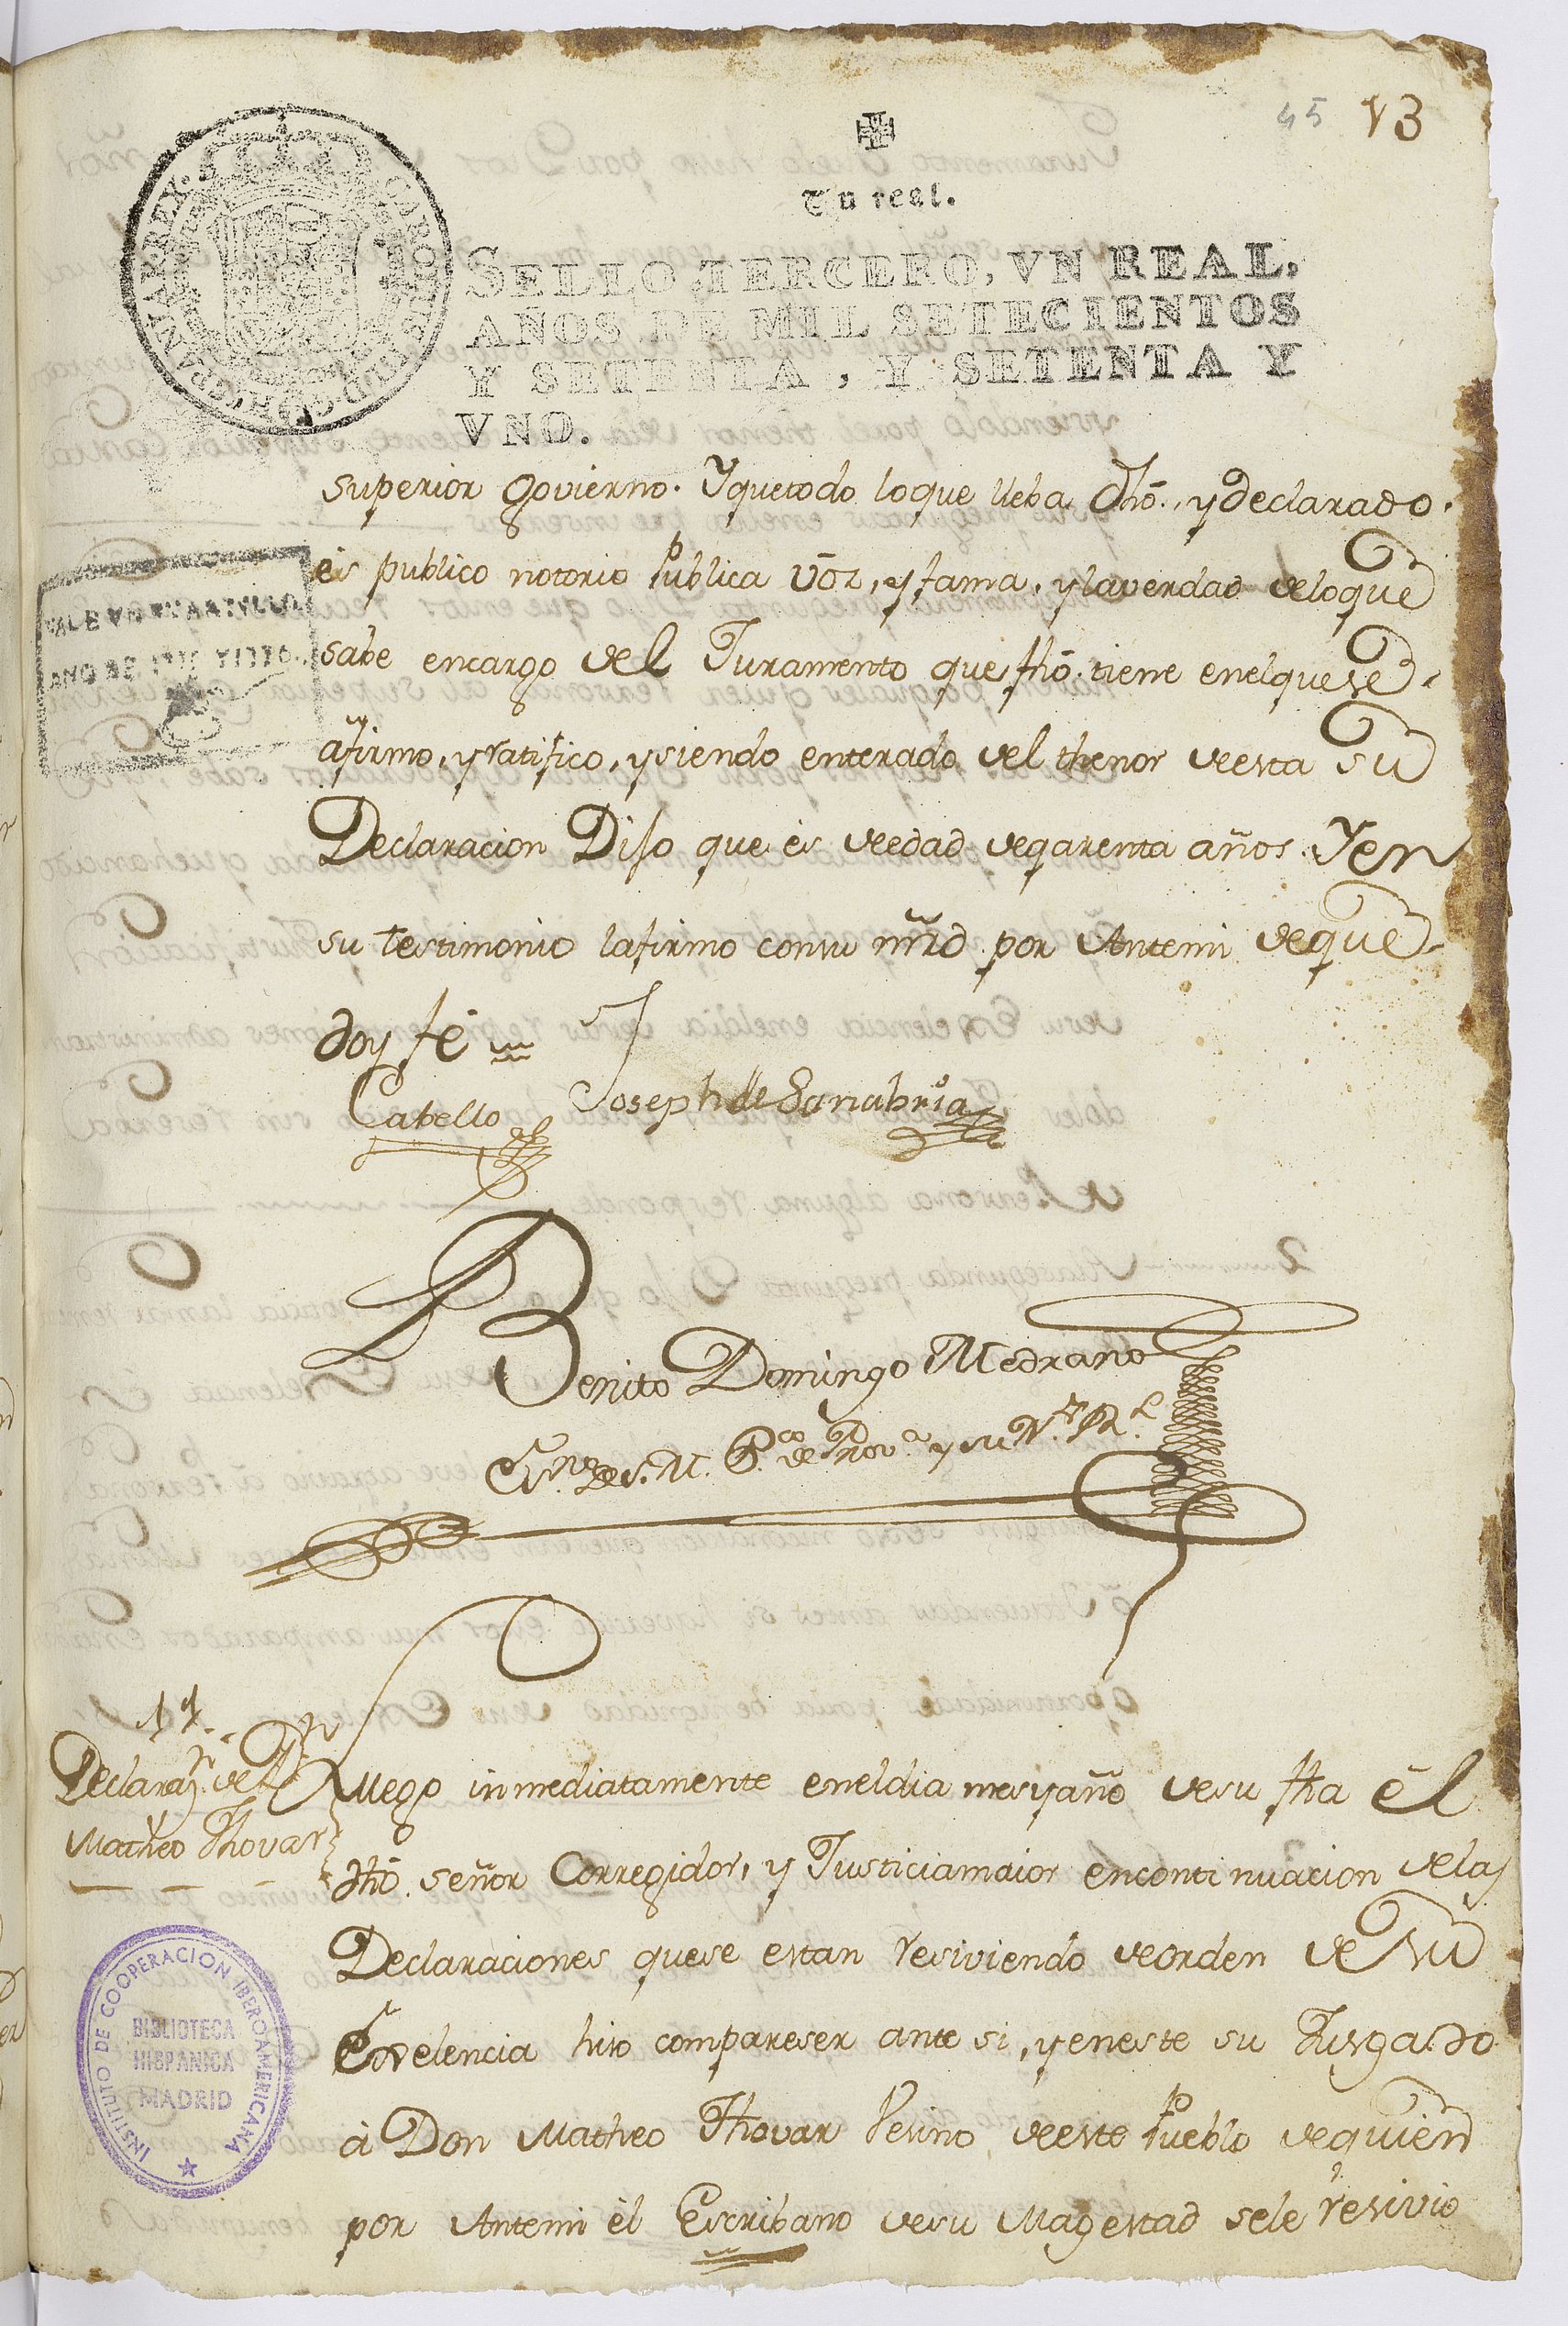 45 73
Un real.
SELLO TERCERO, VN REAL,
AÑOS DE MIL SETECIENTOS
Y SETENTA, Y SETENTA Y
VNO.
superior Govierno. Y que todo lo que lleba dhō., y declarado.
es publico notorio publica voz, y fama, y la verdad de lo que
sabe encargo del Juramento que fhō. tiene en el que se
afirmo, y ratifico, y siendo enterado del thenor de esta su
Declaracion Dijo que es de edad de qarenta años. Y en
su testimonio la firmo con su mrd. por Antemi de que
doy fé
Cabello Joseph de Sanabria
Benito Domingo Medrano
Esno. de S. M. Pco. de Prova. y su Nto. Rl.
11.
Declarazn. de Dn
Matheo Thovar
Luego inmediatamente en el dia mes y año de su fha él
dhō. señor Corregidor, y Justicia maior en continuacion de las
Declaraciones que se estan resiviendo de orden de su
Exelencia hiso compareser ante si, y en este su Jusgado
à Don Matheo Thovar Vesino de este Pueblo de quien
por Antemi el Escribano de su Magestad se le resivio
VALE VN QVARTILLO
AÑO DE
INSTITUTO DE COOPERACION IBEROAMERICANA
BIBLIOTECA
HISPANICA
MADRID